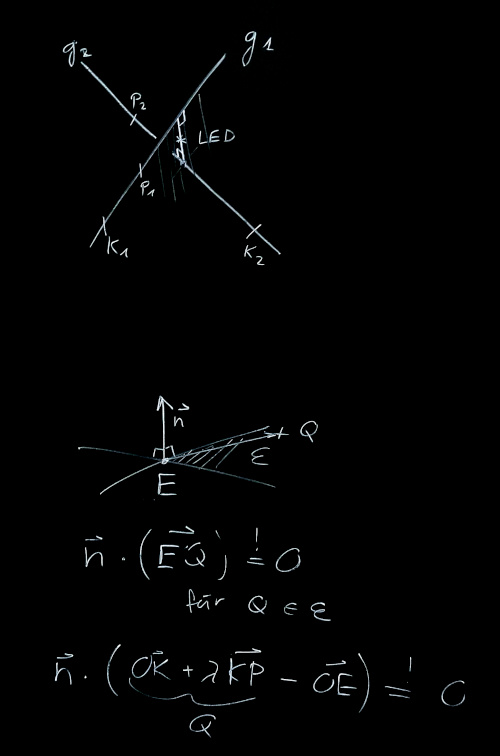 g₂ g₁
P₂
LED
P₁
K₁
K₂
n⃗
Q
ε
E
n⃗ · (E⃗Q⃗) =! 0
für Q ∈ ε
n⃗ · (O⃗K⃗ + λK⃗P⃗ − O⃗E⃗) =! 0
Q